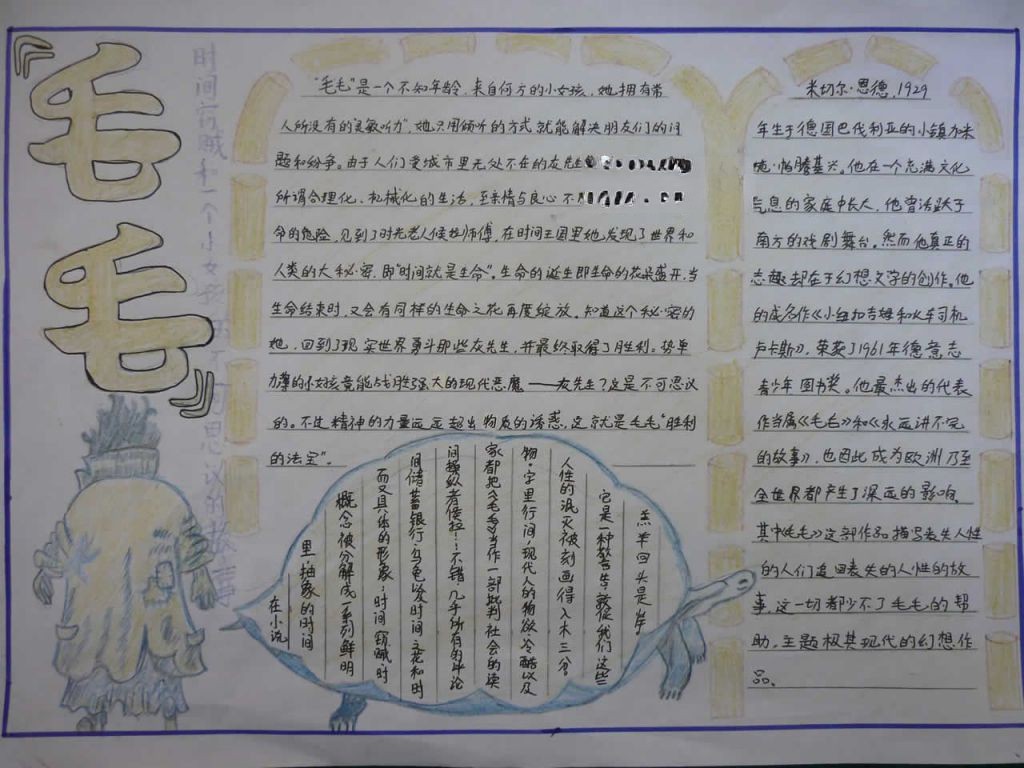 《毛毛》
时间窃贼和一个小女孩的不可思议的故事
“毛毛”是一个不知年龄，来自何方的小女孩，她拥有常
人所没有的“灵敏听力”，她只用倾听的方式就能解决朋友们的问
题和纷争。由于人们受城市里无处不在的灰先生
所谓合理化、机械化的生活，至亲情与良心不
命的危险，见到了时光老人侯拉师傅，在时间王国里她发现了世界和
人类的大秘密，即“时间就是生命”。生命的诞生即生命的花朵盛开，当
生命结束时，又会有同样的生命之花再度绽放。知道这个秘密的
她，回到了现实世界勇斗那些灰先生，并最终取得了胜利。势单
力薄的小女孩竟能战胜强大的现代恶魔——灰先生？这是不可思议
的。不过精神的力量远远超出物质的诱惑，这就是毛毛“胜利
的法宝”。
米切尔·恩德，1929
年生于德国巴伐利亚的小镇加米
施·帕滕基兴。他在一个充满文化
气息的家庭中长大，他曾活跃于
南方的戏剧舞台。然而他真正的
志趣却在于幻想文学的创作。他
的成名作《小纽扣吉姆和火车司机
卢卡斯》，荣获了1961年德意志
青少年图书奖。他最杰出的代表
作当属《毛毛》和《永远讲不完
的故事》，也因此成为欧洲乃至
全世界都产生了深远的影响。
其中《毛毛》这部作品描写丧失人性
的人们追回丧失的人性的故
事，这一切都少不了毛毛的帮
助，主题极其现代的幻想作
品。
在小说
里抽象的时间
概念被分解成一系列鲜明
而又具体的形象，时间窃贼、时
间储蓄银行、乌龟以及时间之花和时
间操纵者侯拉……不错，几乎所有的评论
家都把《毛毛》当作一部批判社会的读
物，字里行间，现代人的物欲、冷酷以及
人性的泯灭被刻画得入木三分
它是一种警告，敦促我们这些
羔羊回头是岸